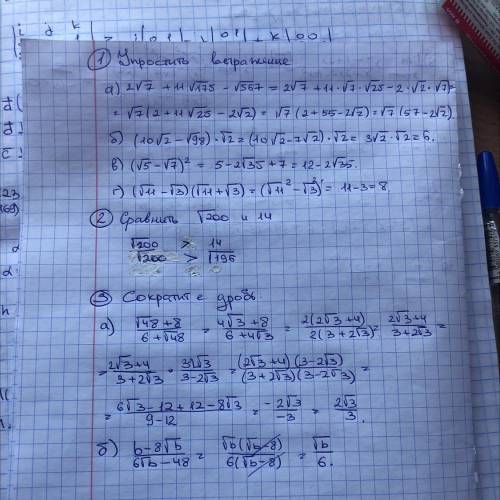 i j k
① Упростить выражение
а) 2√7 + 11√175 - √567 = 2√7 + 11·√7·√25 - 2·√2·√7 =
= √7(2 + 11√25 - 2√2) = √7(2 + 55 - 2√2) = √7(57 - 2√2).
б) (10√2 - √98)·√2 = (10√2 - 7√2)·√2 = 3√2·√2 = 6.
в) (√5 - √7)² = 5 - 2√35 + 7 = 12 - 2√35.
г) (√11 - √3)(√11 + √3) = (√11² - √3²) = 11 - 3 = 8.
② Сравнить √200 и 14
√200 > 14
√200 > √196
③ Сократите дробь
а) (√48 + 8)/(6 + √48) = (4√3 + 8)/(6 + 4√3) = 2(2√3 + 4)/2(3 + 2√3) = (2√3 + 4)/(3 + 2√3) =
= (2√3 + 4)/(3 + 2√3) · (3-2√3)/(3 - 2√3) = (2√3 + 4)(3 - 2√3)/(3 + 2√3)(3 - 2√3) =
= (6√3 - 12 + 12 - 8√3)/(9 - 12) = (-2√3)/(-3) = 2√3/3.
б) (b - 8√b)/(6√b - 48) = √b(√b - 8)/6(√b - 8) = √b/6.